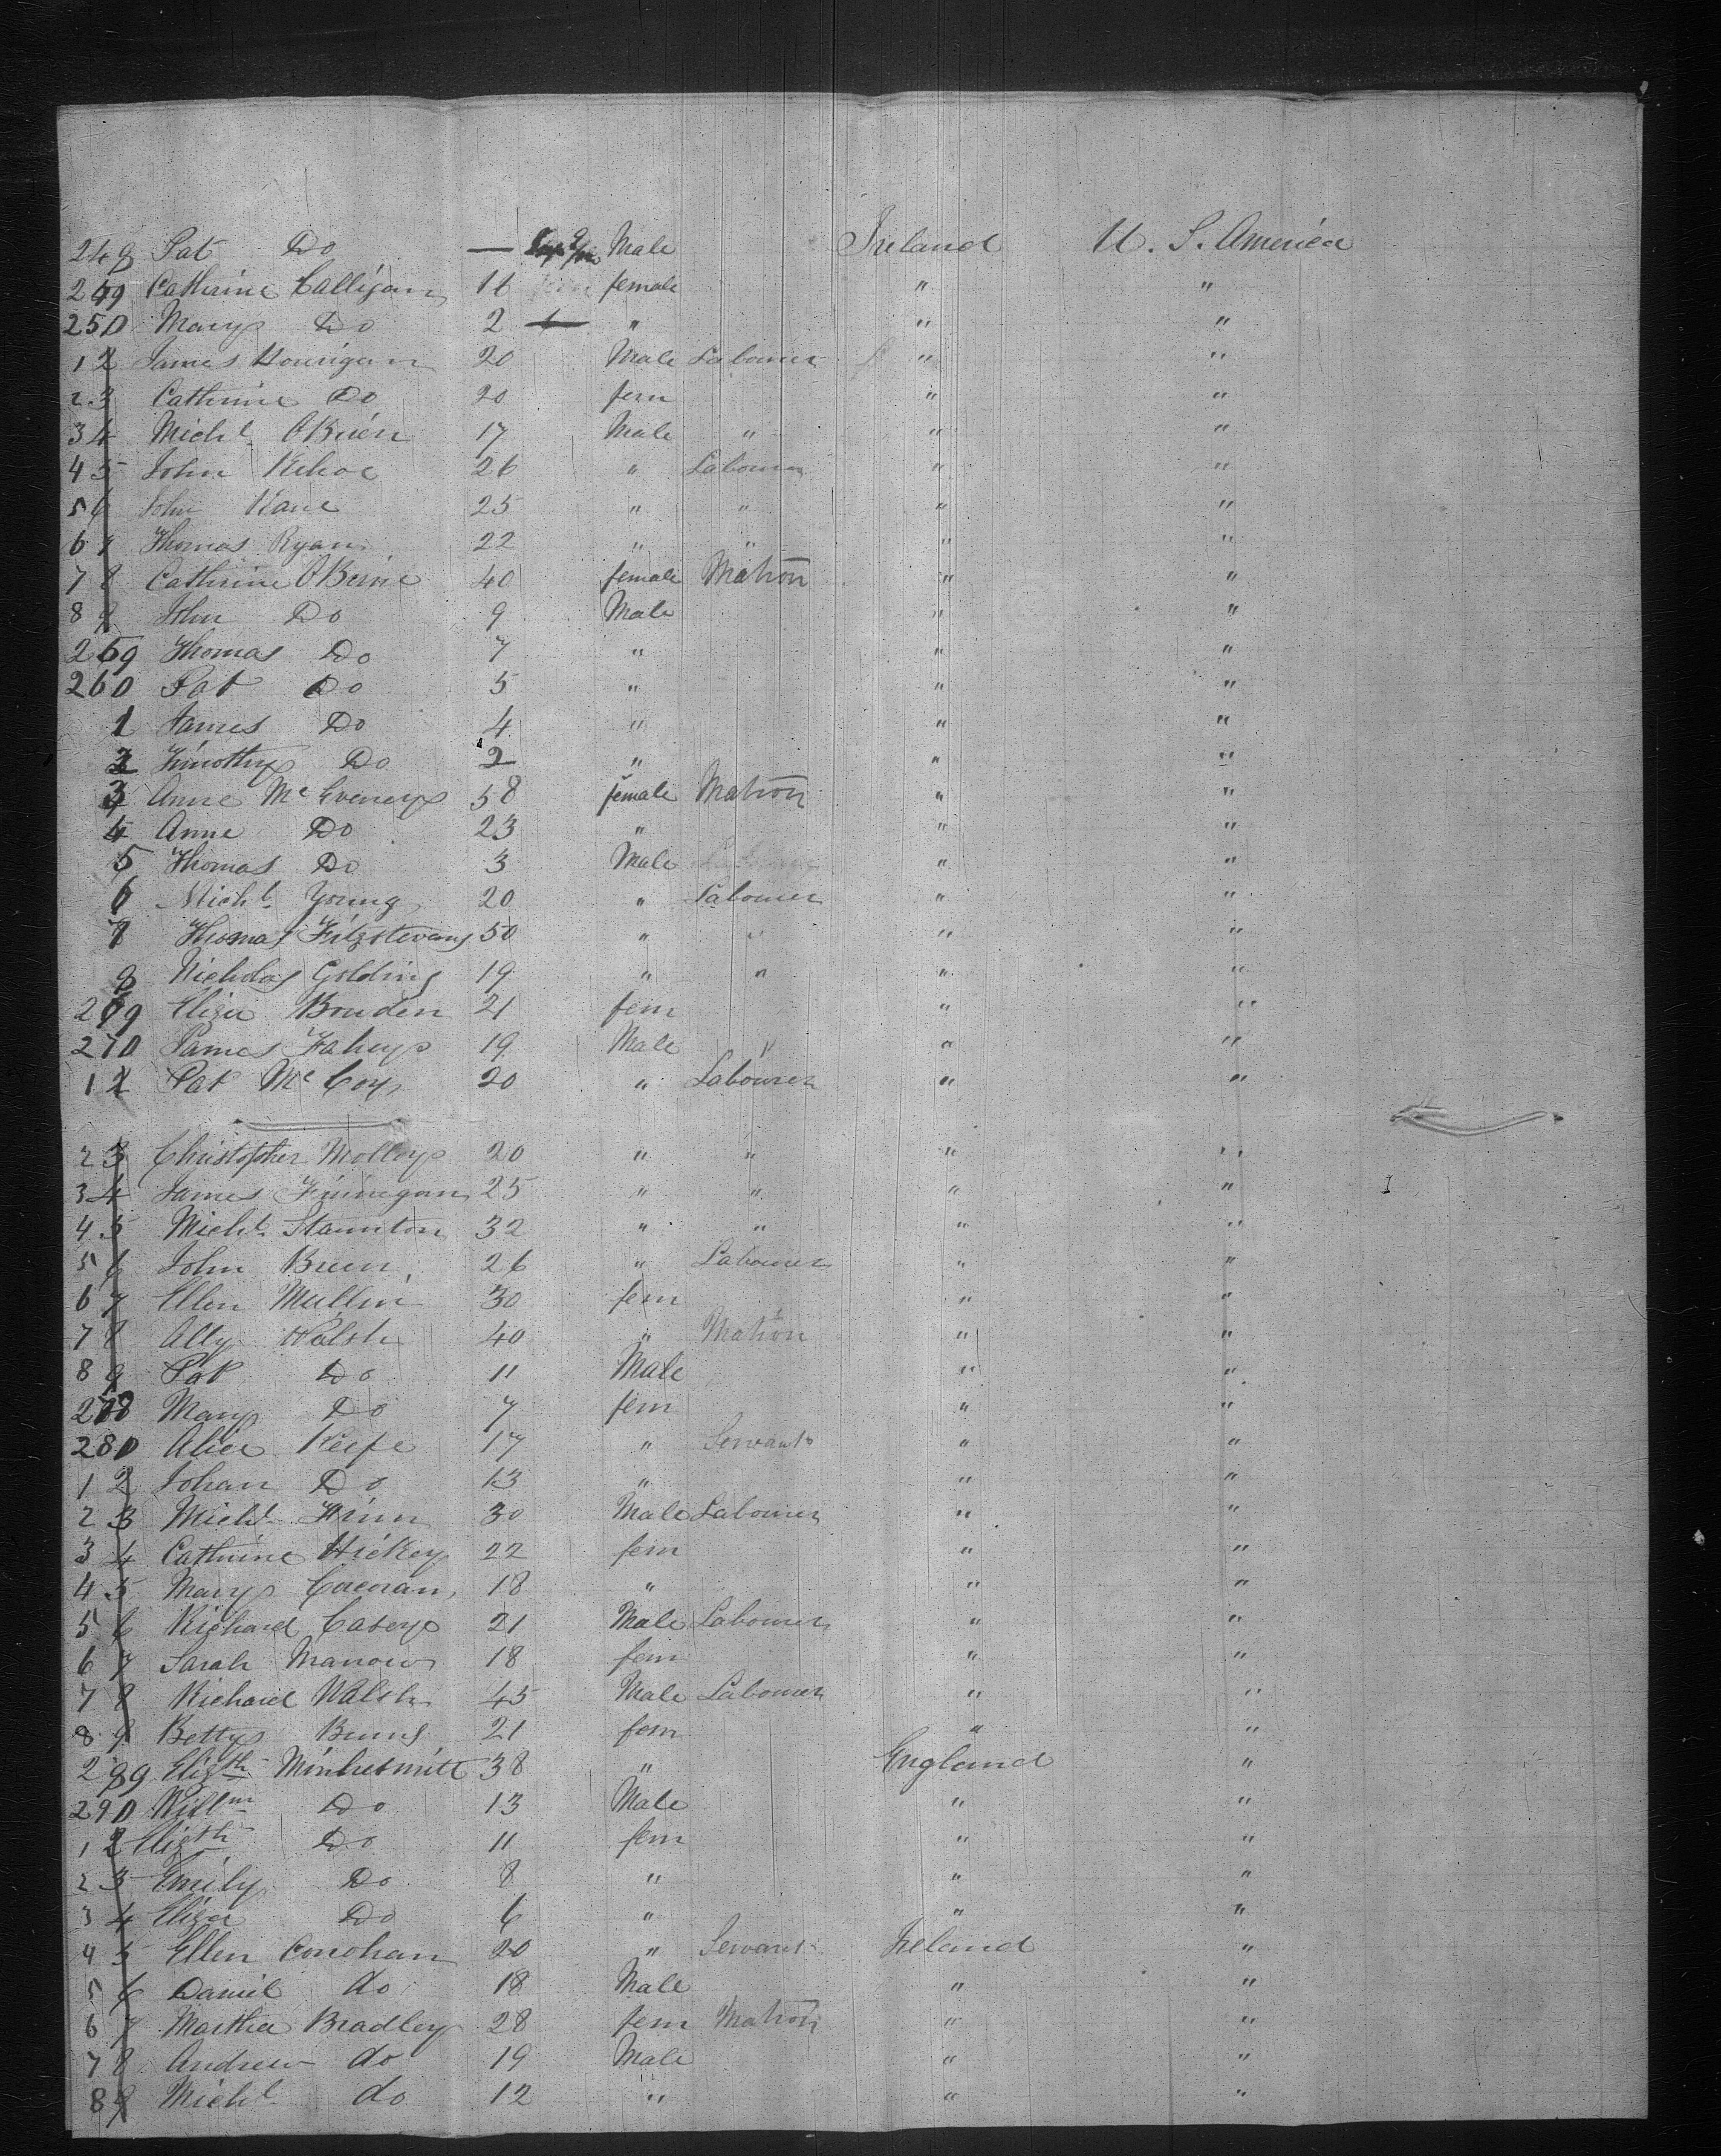 248 Pat Do — Male Ireland U. S. America
249 Catherine Calligan 11 female " "
250 Mary Do 2 " " "
1 2 James Hourigan 20 Male Labourer " "
2 3 Catherine Do 20 fem " "
3 4 Michl OBrien 17 Male " " "
4 5 John Kehoe 26 " Labourer " "
5 6 John Kane 25 " " " "
6 7 Thomas Ryan 22 " " " "
7 8 Catherine OBeirne 40 female Matron " "
8 9 John Do 9 Male " "
259 Thomas Do 7 " " "
260 Pat Do 5 " " "
1 James Do 4 " " "
2 Timothy Do 2 " " "
3 Anne Mc Eveney 58 female Matron " "
4 Anne Do 23 " " "
5 Thomas Do 3 Male " "
6 Michl Young 20 " Labourer " "
7 Thomas Fitzstevens 50 " " " "
8 Nicholas Golding 19 " " " "
269 Eliza Bouden 21 fem " "
270 James Fahey 19 Male " " "
1 2 Pat Mc Coy 20 " Labourer " "
2 3 Christopher Molloy 20 " " " "
3 4 James Finnegan 25 " " " "
4 5 Michl Staunton 32 " " " "
5 6 John Breen 26 " Labourer " "
6 7 Ellen Mullin 30 fem " "
7 8 Ally Walsh 40 " Matron " "
8 9 Pat Do 11 Male " "
279 Mary Do 7 fem " "
280 Alice Keefe 17 " Servant " "
1 2 Johan Do 13 " " "
2 3 Michl Finn 30 Male Labourer " "
3 4 Catherine Hickey 22 fem " "
4 5 Mary Cocoran 18 " " "
5 6 Richard Casey 21 Male Labourer " "
6 7 Sarah 18 fem " "
7 8 Richard Walsh 45 Male Labourer " "
8 9 Betty Burns 21 fem " "
289 Elizth 38 " England "
290 Willm Do 13 Male " "
1 2 Elizth Do 11 fem " "
2 3 Emily Do 8 " " "
3 4 Eliza Do 6 " " "
4 5 Ellen Conohan 20 " Servant Ireland "
5 6 Daniel do 18 Male " "
6 7 Martha Bradley 28 fem Matron " "
7 8 Andrew do 19 Male " "
8 9 Michl do 12 " " "